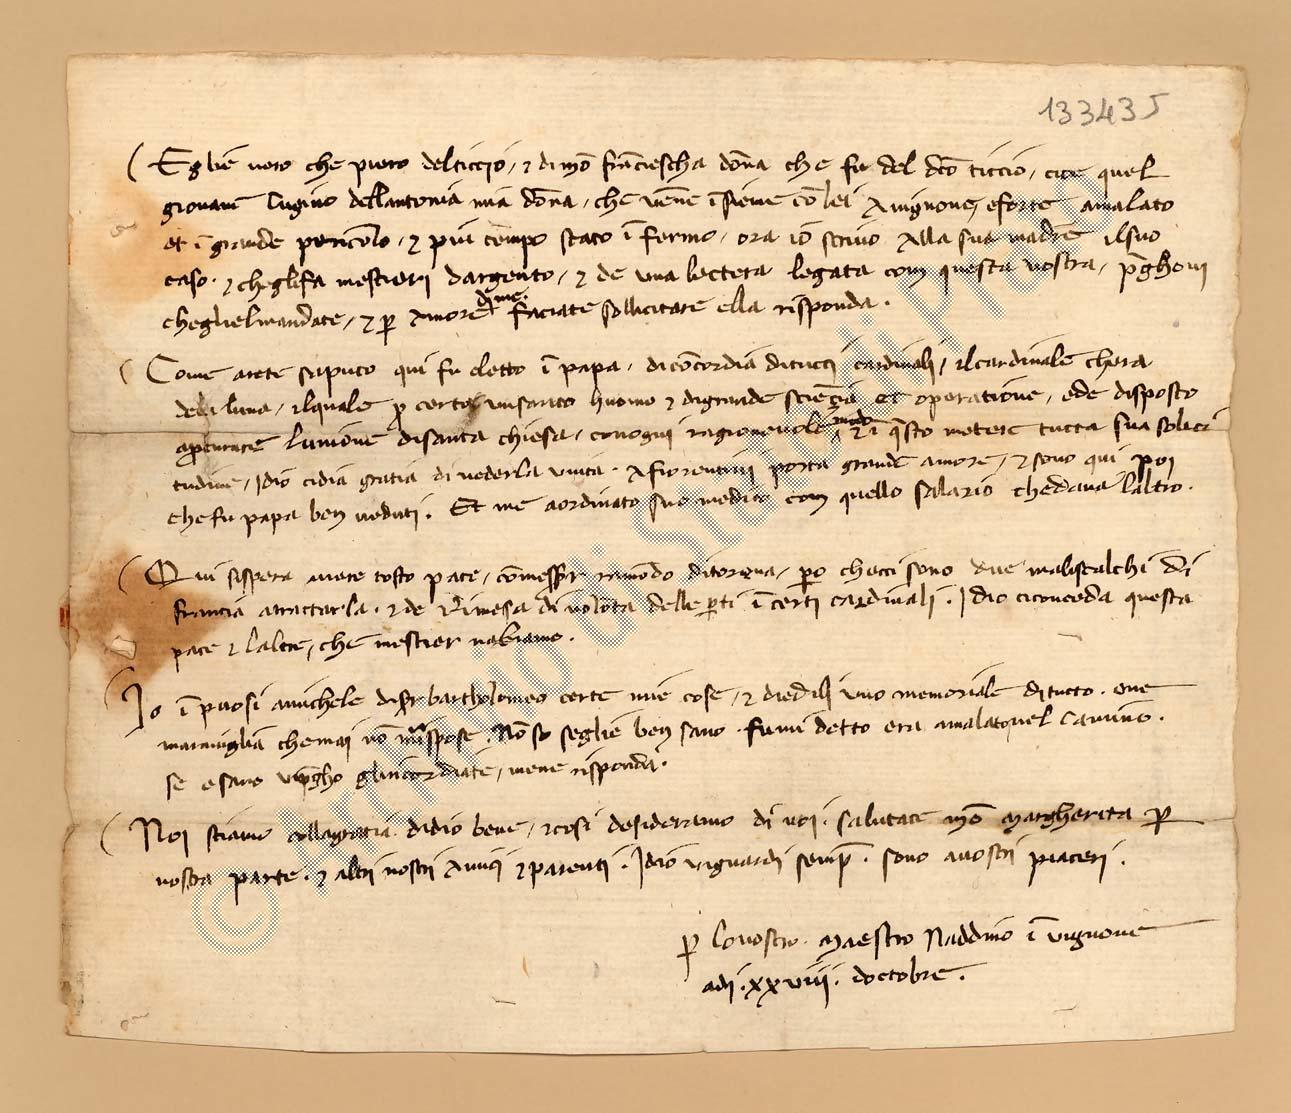 133435
Eglie vero che piero del ticcio, et di mō franciescha dōna che fu del dcō ticcio, cioe quel
giovane cugino dellantonia mia dōna, che vēne īsieme cō lei Avignone, e forte amalato
et ī grande pericolo, et piu tēmpo stato īfermo, ora io scrivo alla sua madre il suo
caso. et che gli fa mestieri dargento, et de una lectera legata com questa vostra, pghovi
che gliel mandate, et p amore di me. faciate sollicitare ella risponda.
Come avete saputo qui fu eletto ī papa, di cōcordia di tucti cardinali, il cardinale chera
de la luna, il quale p certo un savio huomo et di grande sciēcia et operatione, ed e disposto
aprocurare lunione di santa chiesa, con ogni ragionevole modo et ī qsto metere tucta sua solici
tudine, Idio ci dia gratia di vederla unita. A fiorentini porta grande amore, et sono qui poi
che fu papa ben veduti. Et me a ordinato suo medico com quello salario che dava laltro.
Qui si spera avere tosto pace, cō messer ramōdo di torena, po che cci sono due maliscalchi di
francia a tractarla. et de rimesa di volōta delle pti ī certi cardinali. Idio ci conceda questa
pace et laltre, che mestier nabiamo.
Io īpuosi a michele di ser bartholomeo certe mie cose, et diedili uno memoriale di tucto. one
maraviglia che mai nō mi rispose. Nō so se gli e ben sano. fumi detto era amalato nel camino.
se e sano vi pgho gli ricordiate, mene risponda.
Noi stiamo colla gratia didio bene, et cosi desideriamo di voi. salutate mō Margherita p
nostra parte. et altri nostri amici et parenti. Idio vi guardi semp. sono a vostri piaceri.
p lo vostro. Maestro Naddino ī vignone
adi. xxviii. doctobre.
© Archivio di Stato di Prato